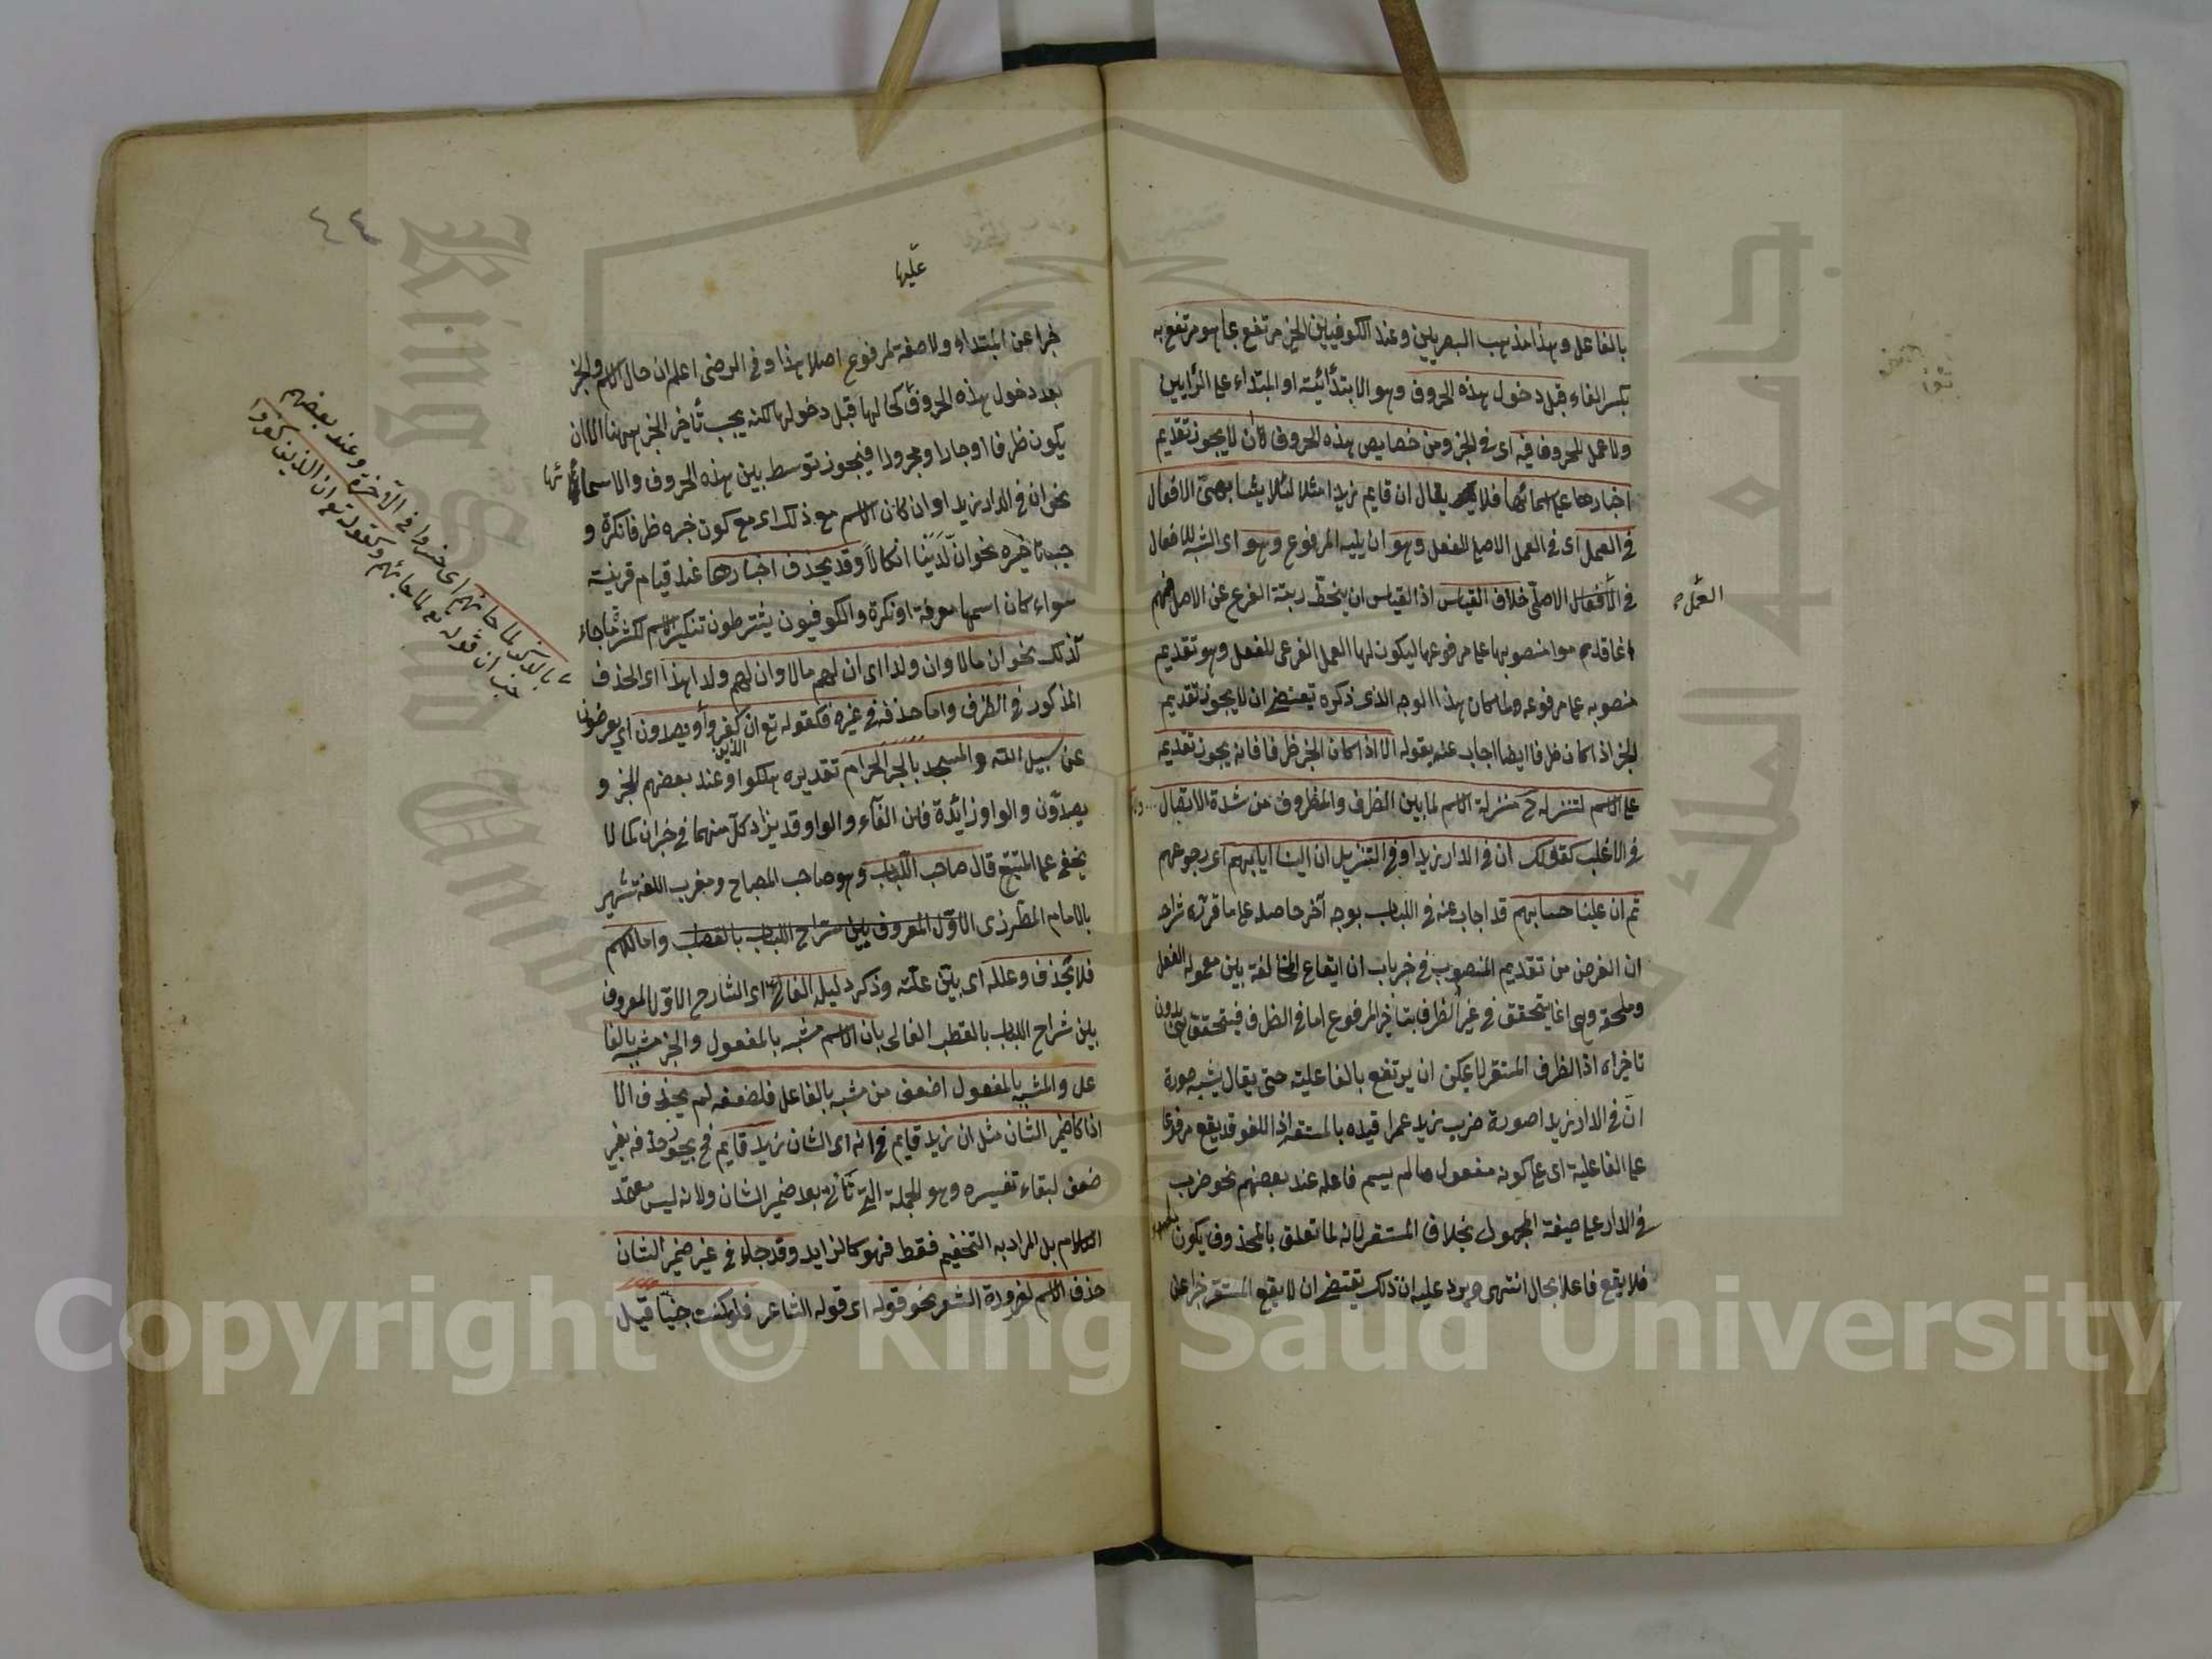 بالفاعل وهذا مذهب البصريين وعند الكوفيين الخبر مرتفع بما هو مرتفع به
بكسر الفاء قبل دخول هذه الحروف وهو الابتدائية او المبتداء على الرأيين
ولا عمل للحروف فيه اى فى الخبر ومن خصايص هذه الحروف ان لا يجوز تقديم
اخبارها على اسمائها فلا يقال ان قايم زيدا مثلا لئلا يشابه الافعال
فى العمل اى فى العمل الاصلى للفعل وهو ان يليه المرفوع وهو اى الشبه للافعال
فى الافعال الاصلى خلاف القياس اذ القياس ان ينحط رتبة الفرع عن الاصل
العمل
قدموا منصوبها على مرفوعها ليكون لها العمل الفرعى للفعل وهو تقديم
منصوبه على مرفوعه ولما كان هذا الوجه الذى ذكره تقتضى ان لا يجوز تقديم
الخبر اذا كان ظرفا ايضا اجاب عنه بقوله الا اذا كان الخبر ظرفا فانه يجوز تقديمه
على الاسم لتنزله ح منزلة الاسم لما بين الظرف والمظروف من شدة الاتصال
فى الاغلب كقولك ان فى الدار زيدا وفى التنزيل ان الينا ايابهم اى رجوعهم
ثم ان علينا حسابهم قد اجاب عنه فى اللباب بوجه آخر حاصله على ما قرره شراحه
ان الغرض من تقديم المنصوب فى خبر باب ان ايقاع المخالفة بين معمولى الفعل
وملحقه وهى انما يتحقق فى غير الظرف بتاخير المرفوع اما فى الظرف فيتحقق بدون
تاخيره اذ الظرف المستقر لا يمكن ان يرتفع بالفاعلية حتى يقال يشبه صورة
ان فى الدار زيدا صورة ضرب زيد عمرا قيده بالمستقر اذ اللغو قد يقع مرفوعا
على الفاعلية اى على كونه مفعول ما لم يسم فاعله عند بعضهم نحو ضرب
فى الدار على صيغة المجهول بخلاف المستقر لانه لما تعلق بالمحذوف يكون
فلا يقع فاعلا بحال انتهى ويرد عليه ان ذلك يقتضى ان لا يقع المستقر خبرا عن
٤٤
عليها
خبرا عن المبتداء ولا صفة لمرفوع اصلا هذا وفى الرضى اعلم ان حال الاسم والخبر
بعد دخول هذه الحروف كحالها قبل دخولها لكنه يجب تأخير الخبر ههنا الا ان
يكون ظرفا او جارا ومجرورا فيجوز توسطه بين هذه الحروف والاسماء
نحو ان فى الدار زيدا وان كان الاسم مع ذلك اى مع كون خبره ظرفا نكرة و
جب تاخيره نحو ان لدينا انكالا وقد يحذف اخبارها عند قيام قرينة
سواء كان اسمها معرفة او نكرة والكوفيون يشترطون تنكير الاسم لكثرة ما جاء
كذلك نحو ان مالا وان ولدا اى ان لهم مالا وان لهم ولدا هذا اى الحذف
المذكور فى الظرف واما حذفه فى غيره فكقوله تع ان الذين كفروا ويصدون اى يعرضون
عن سبيل الله والمسجد بالجر الحرام تقديره هلكوا وعند بعضهم الخبر و
يصدون والواو زائدة فان الفاء والواو قد يزاد كل منهما فى خبر ان كما لا
يخفى على المتتبع قال صاحب اللباب وهو صاحب المصباح ومغرب اللغة شهير
بالامام المطرزى الاول المعروف بين شراح اللباب واما الاسم
فلا يحذف وعلله اى بين علته وذكر دليله الفالى اى الشارح الاول المعروف
بين شراح اللباب بالقطب الفالى بان الاسم مشبه بالمفعول والخبر مشبه بالفا
عل والمشبه بالمفعول اضعف من مشبه بالفاعل فلضعفه لم يحذف الا
اذا كان ضمير الشان مثل ان زيد قايم فى انه اى الشان زيد قايم فح يجوز حذفه بغير
ضعف لبقاء تفسيره وهو الجملة التى تأتى بعد ضمير الشان ولانه ليس معتمد
الكلام بل المراد به التفخيم فقط فهو كالزايد وقد جاء فى غير ضمير الشان
حذف الاسم لضرورة الشعر نحو قوله اى قول الشاعر فلو كنت ضبيا قيل
بالذكر لما جاءهم اى خسروا فى الآخرة وعند بعضهم